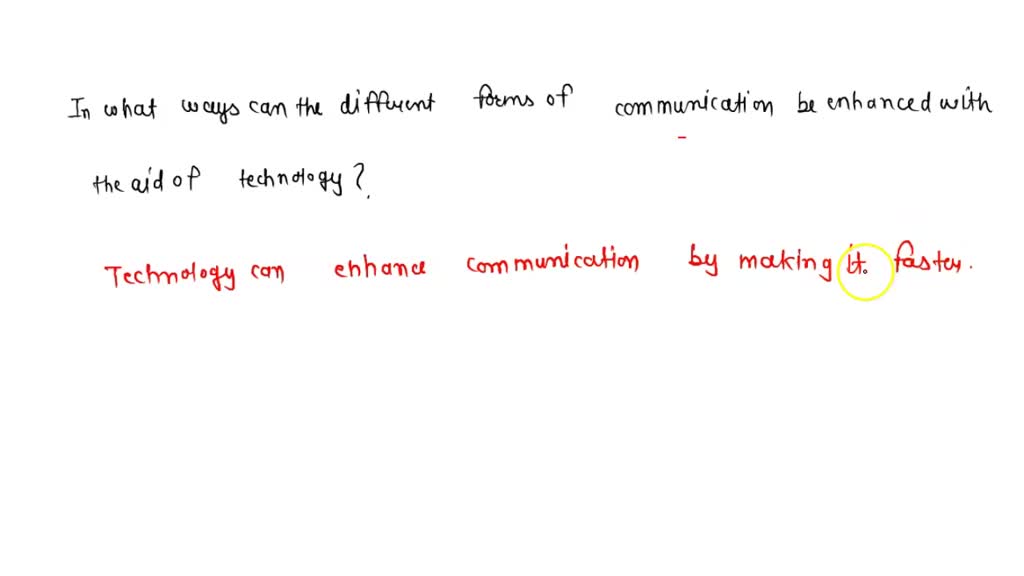 In what ways can the different forms of communication be enhanced with
the aid of technology?
Technology can enhance communication by making it faster.